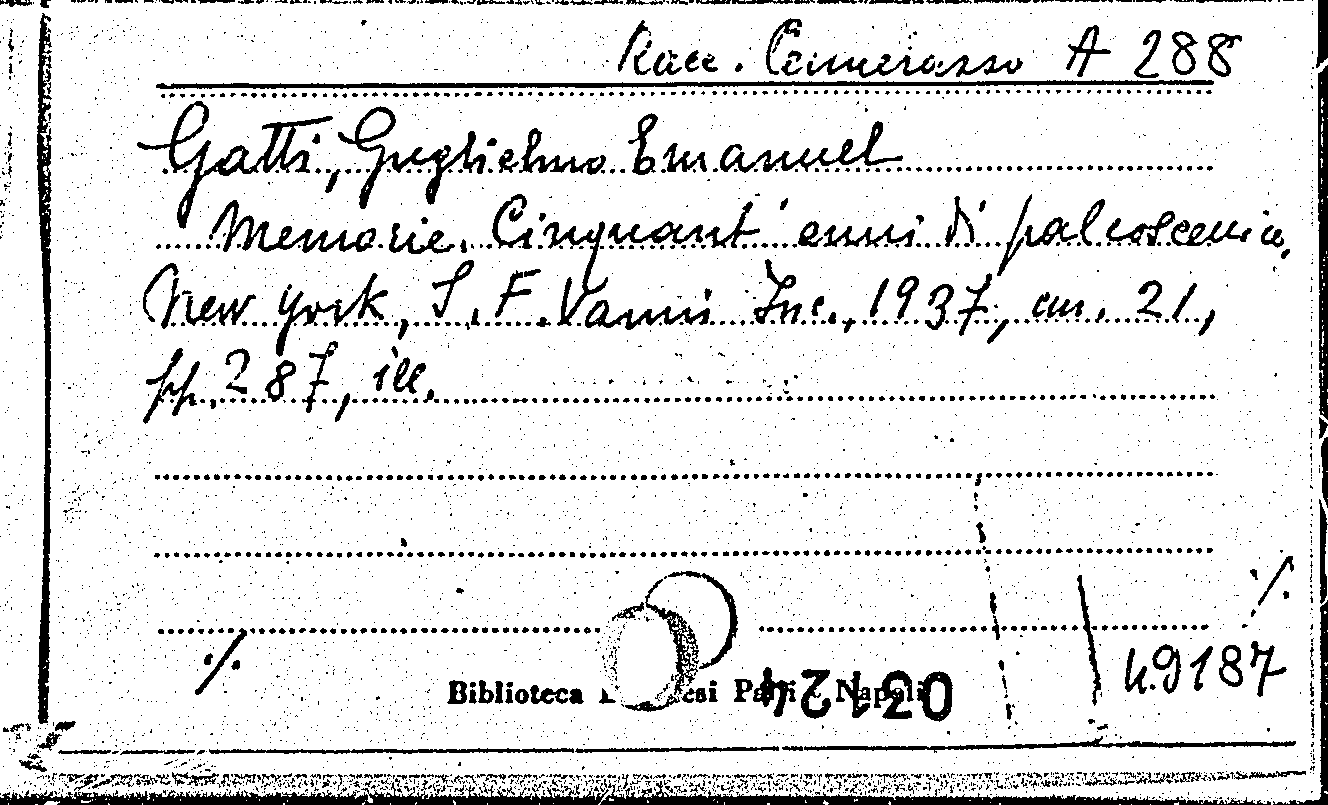 Racc. A 288
Gatti, Guglielmo Emanuel
Memorie. Cinquant' anni di palcoscenico,
New York, S. F. Vanni Inc., 1937, cm. 21,
pp. 287, ill.
Biblioteca Napoli
49187